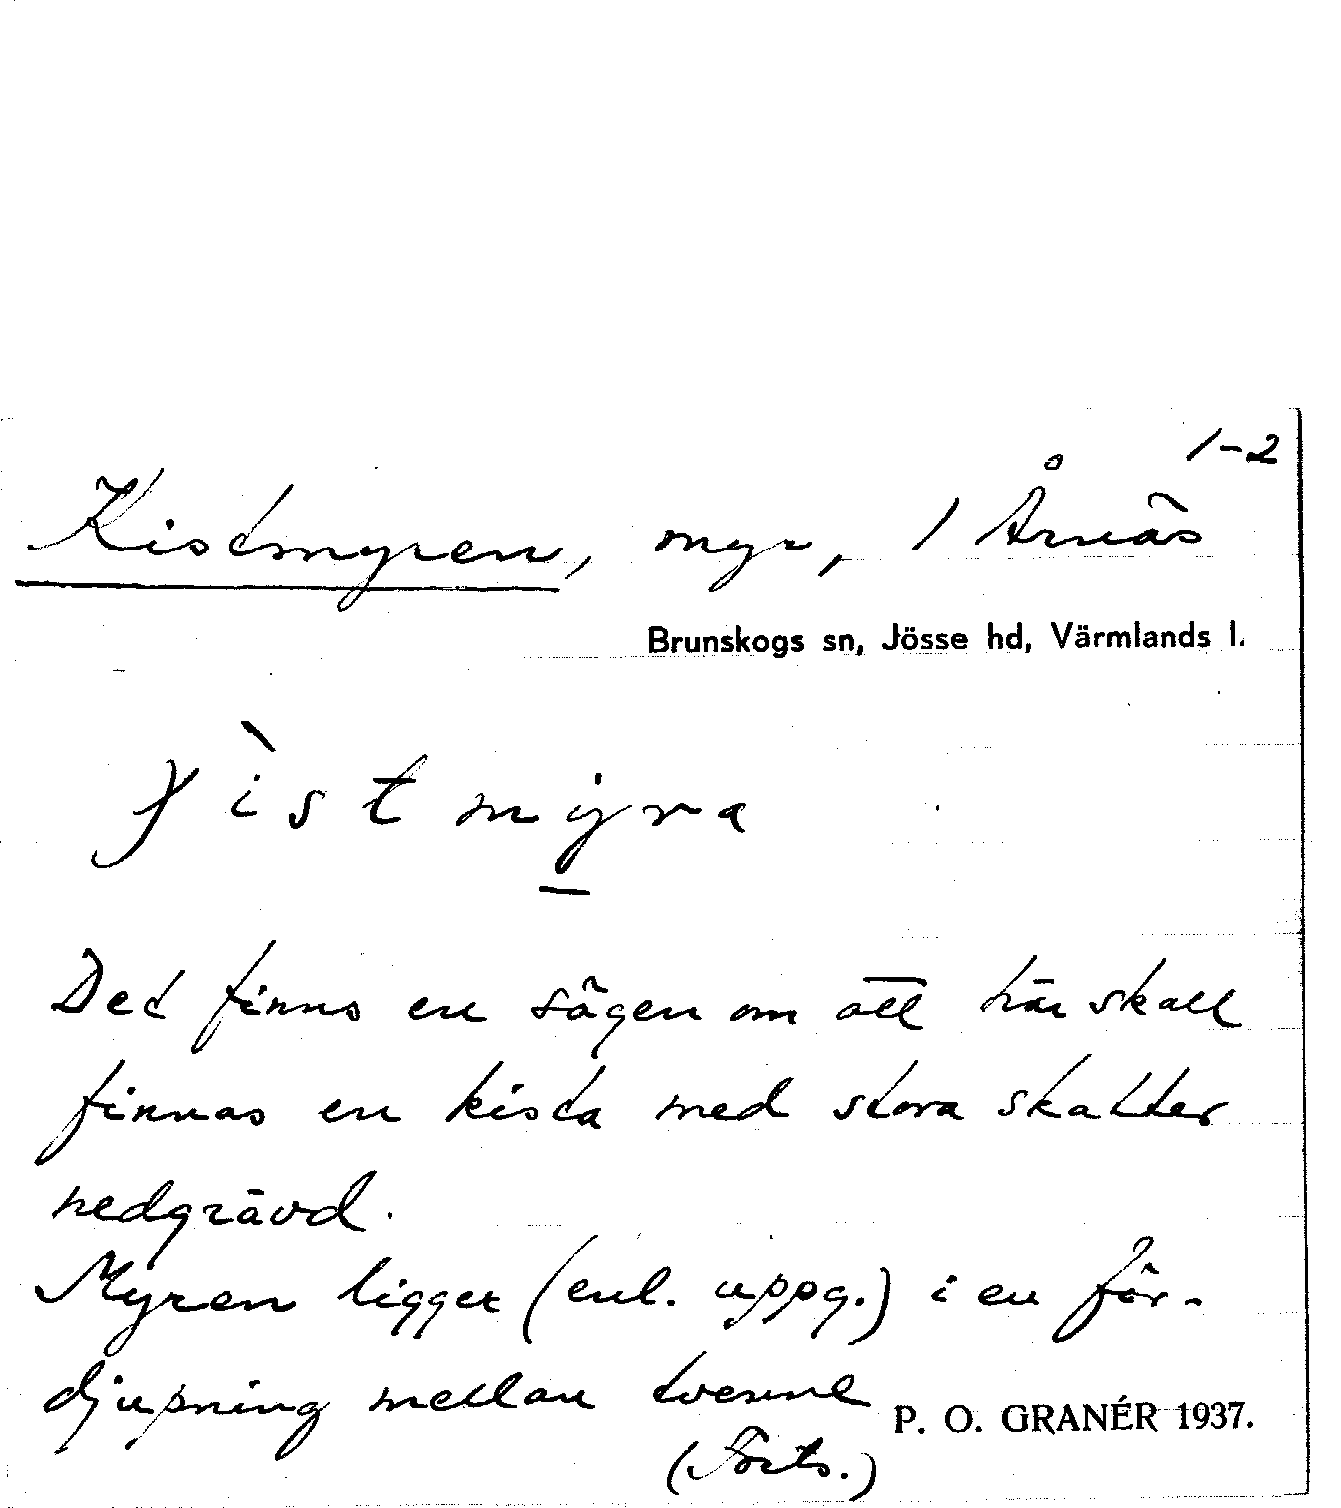 1-2
Kistmyren, myr, / Årnäs
Brunskogs sn, Jösse hd, Värmlands l.
Det finns en sägen om att här skall
finnas en kista med stora skatter
nedgrävd.
Myren ligger (enl. uppg.) i en för-
djupning mellan tvenne
P. O. GRANÉR 1937.
(Forts.)